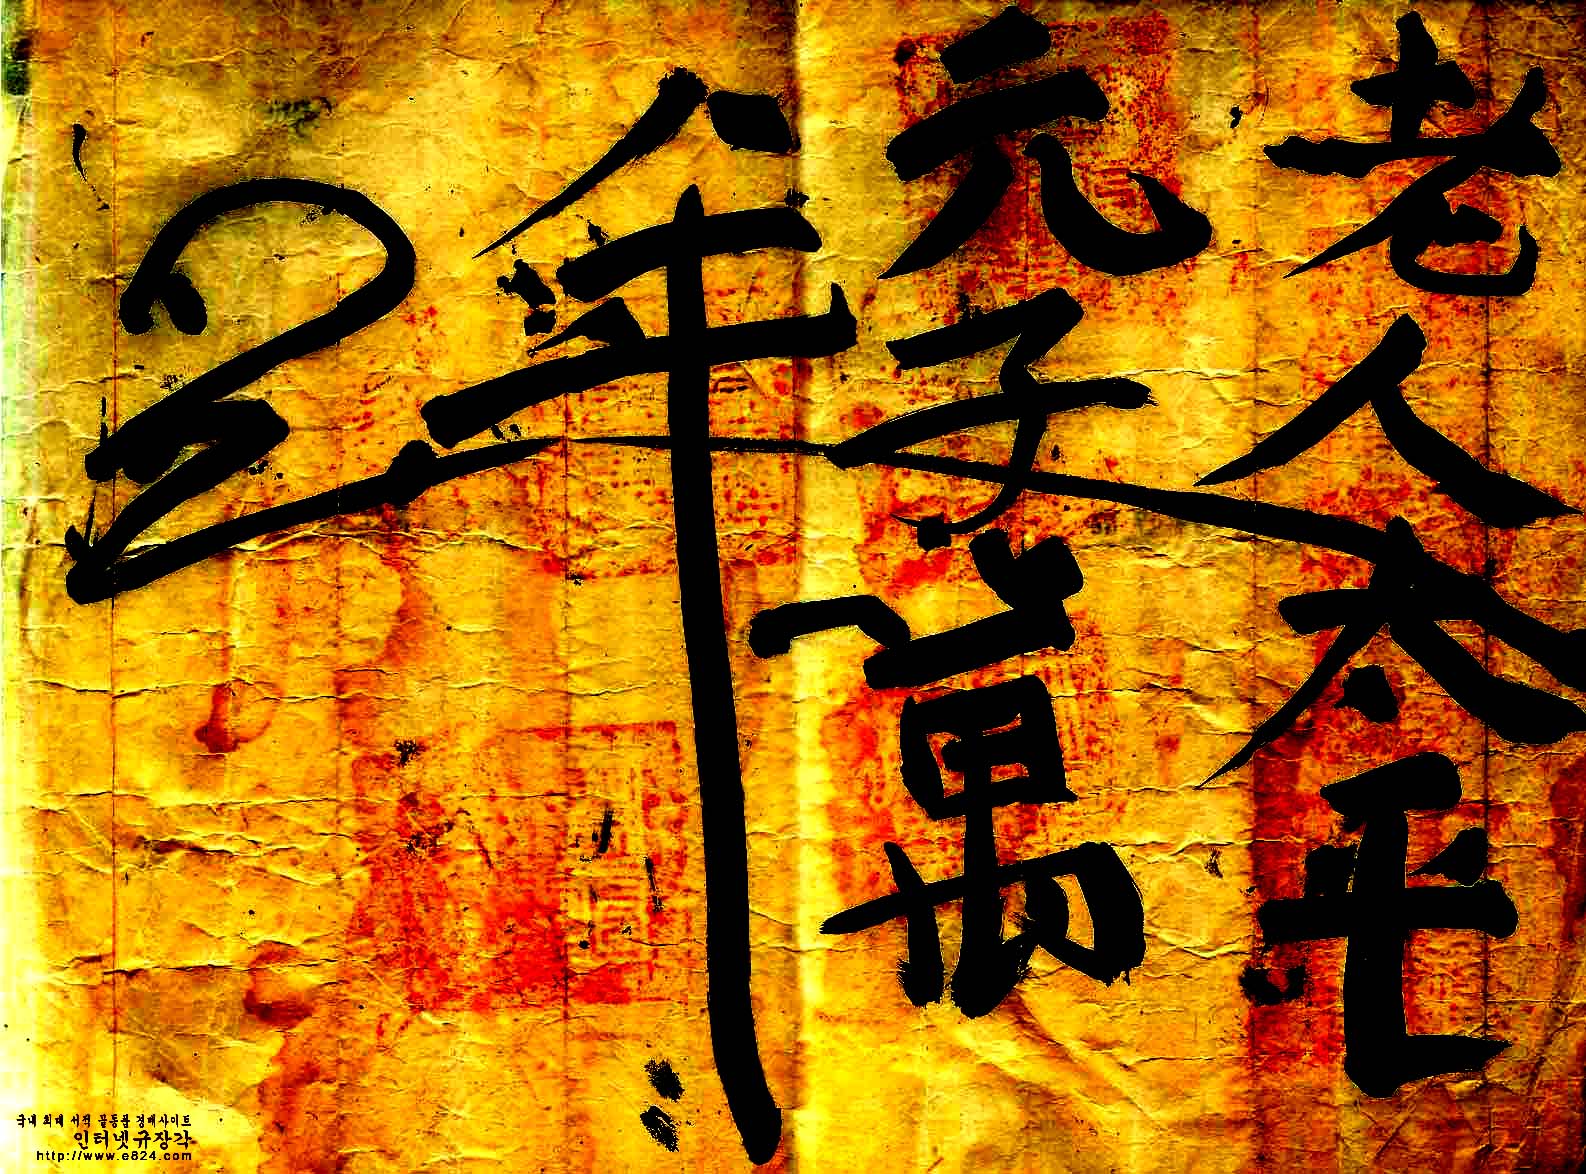 老人太平
元子萬
年
국내 최대 서적 골동품 경매사이트
인터넷규장각
http://www.e824.com